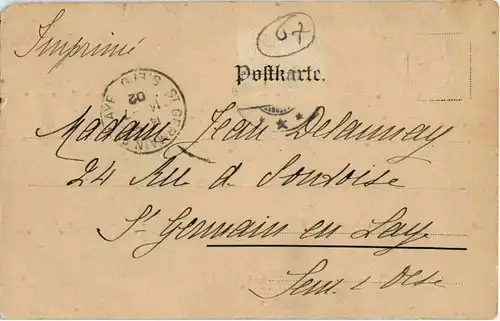 Imprimé
67
Postkarte.
ST GERMAIN
AYE
02
Madame Jean Delaunay
24 Rue d. Pontoise
St Germain en Laye
Seine & Oise